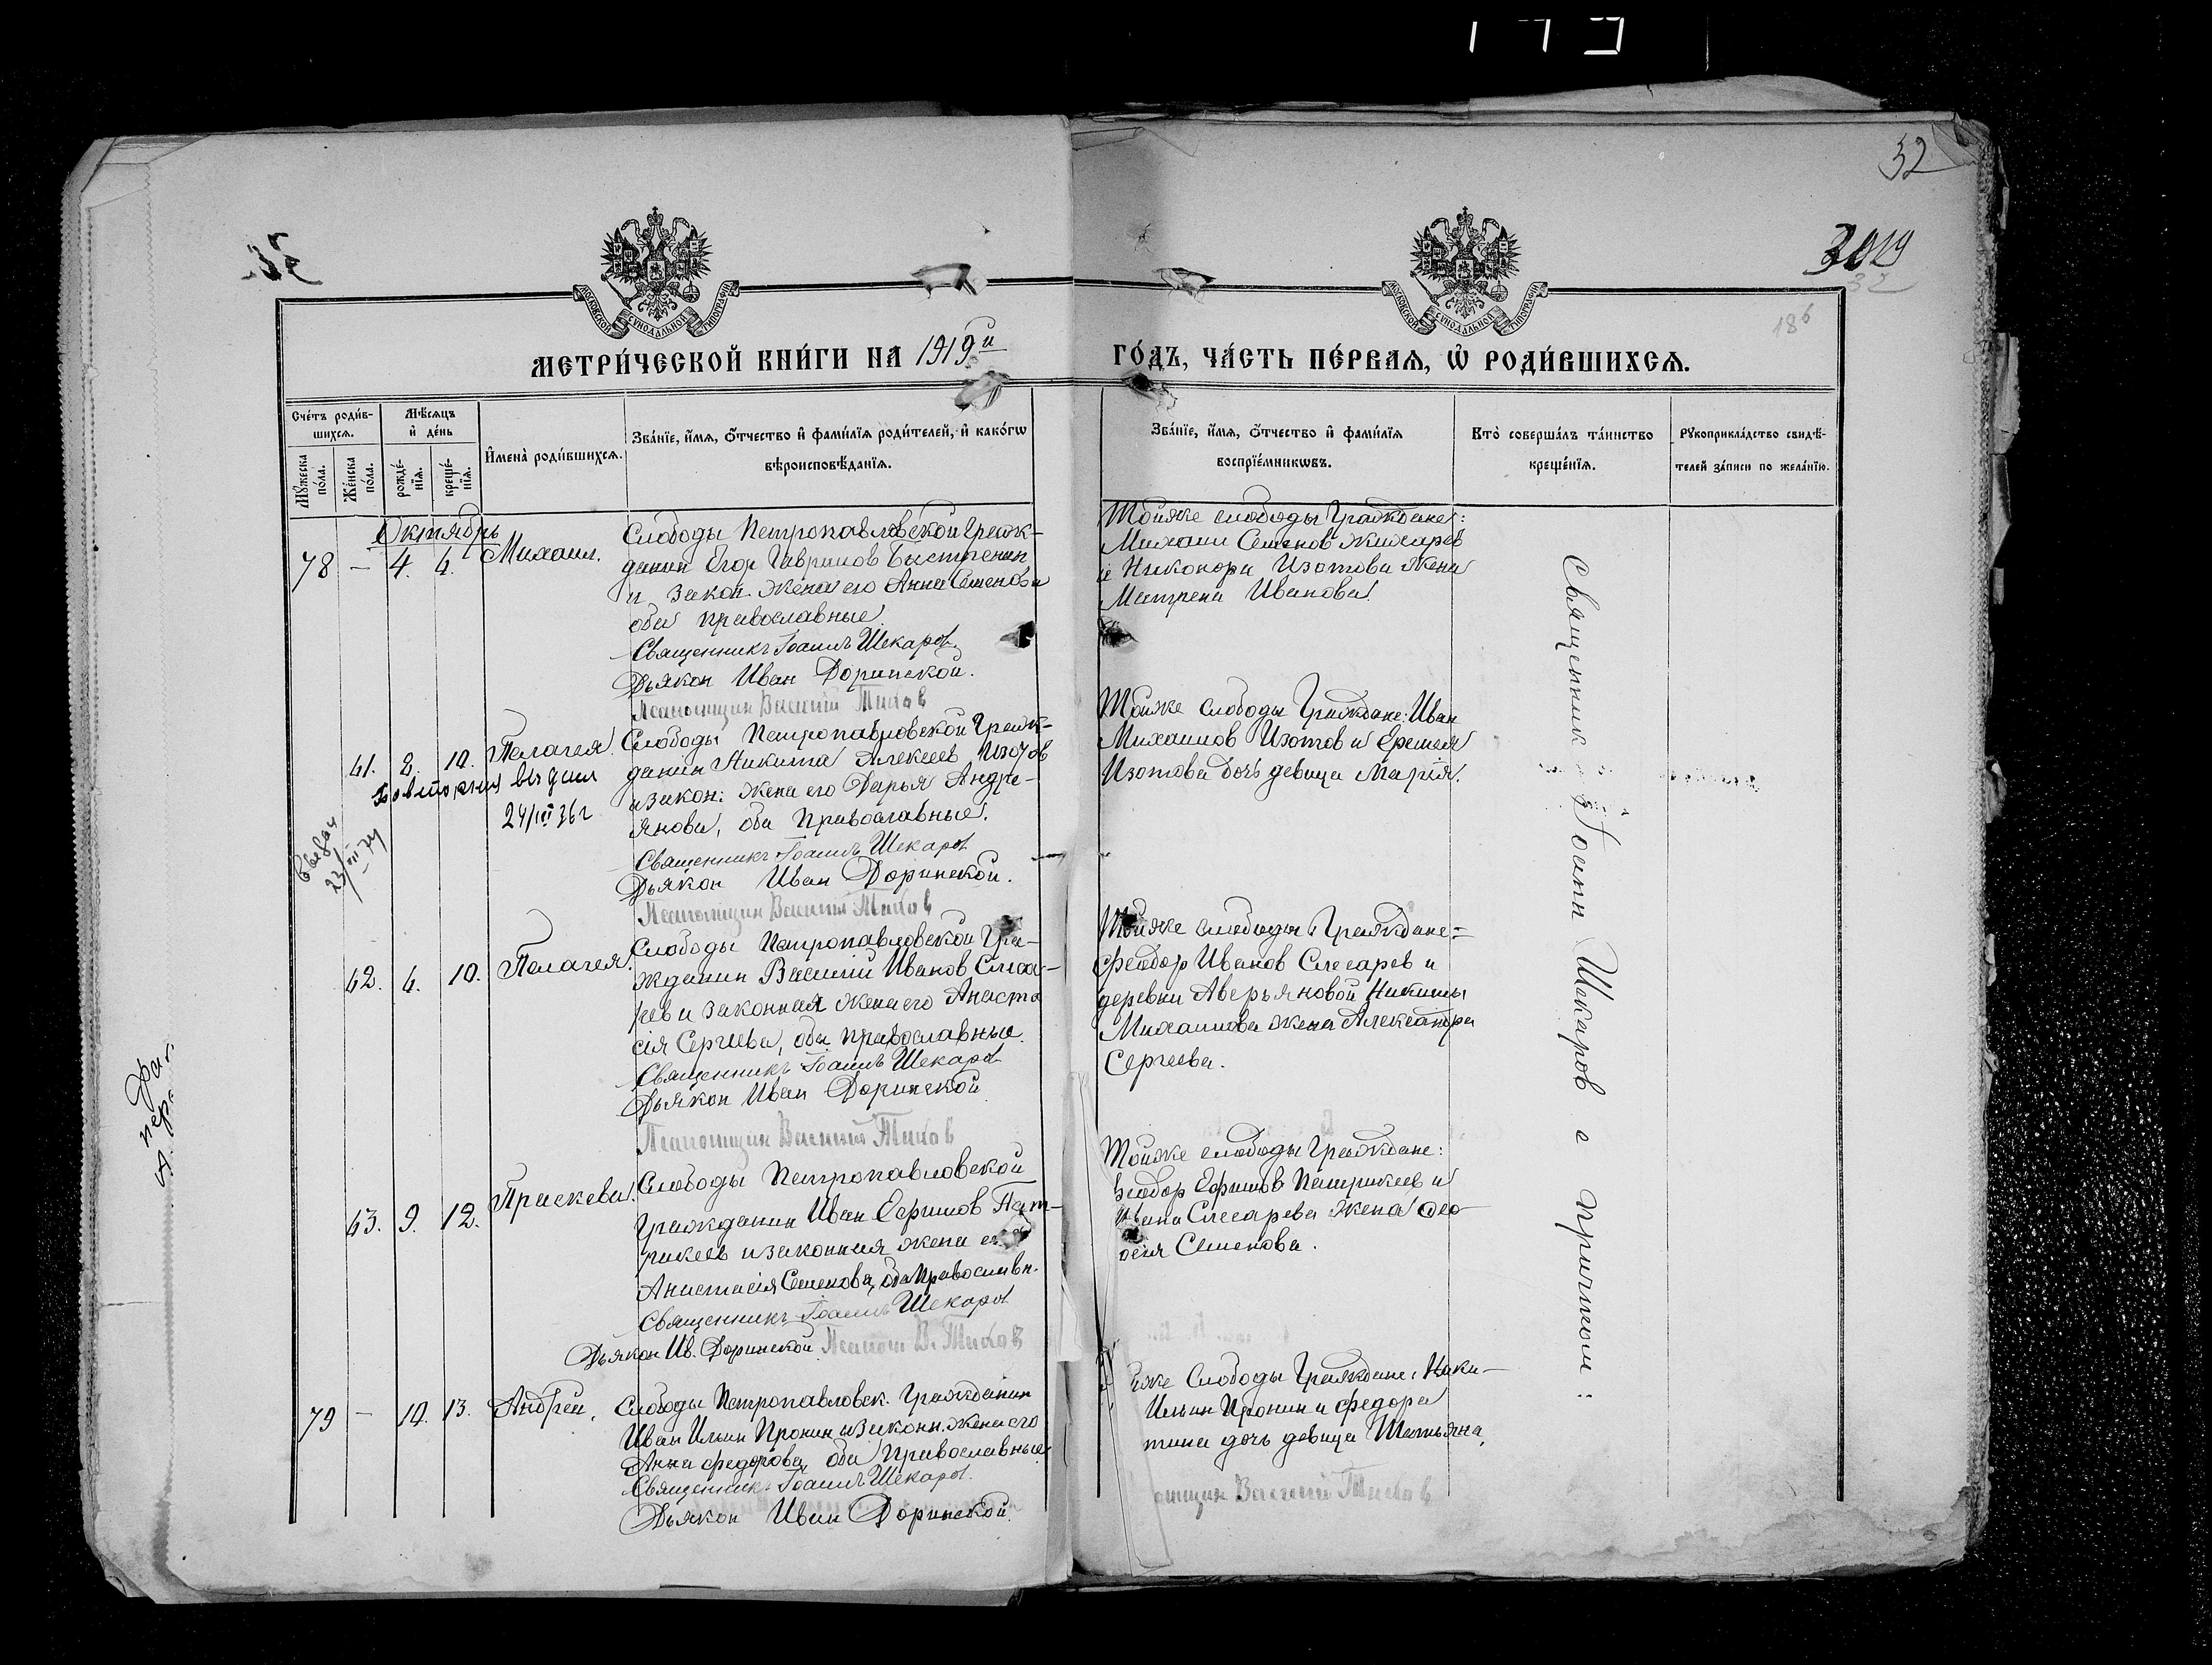 52
3019
32
186
МОСКОВСКОЙ СѴНОДАЛЬНОЙ ТИПОГРАФІИ
МОСКОВСКОЙ СѴНОДАЛЬНОЙ ТИПОГРАФІИ
МЕТРИ́ЧЕСКОЙ КНИ́ГИ НА 1919й
ГО́ДЪ, ЧА́СТЬ ПЕ́РВАѦ, Ѡ҆ РОДИ́ВШИХСѦ.
Сче́тъ роди́в-
шихсѧ.
Мꙋ́жеска по́ла.
Же́нска по́ла.
Мѣ́сѧцъ
и҆ де́нь
рожде́-
нїѧ.
креще́-
нїѧ.
И҆мена̀ роди́вшихсѧ.
Зва́нїе, и҆́мѧ, ѻ҆́тчество и҆ фами́лїѧ роди́телей, и҆ како́гѡ
вѣроисповѣ́данїѧ.
Зва́нїе, и҆́мѧ, ѻ҆́тчество и҆ фами́лїѧ
воспрїе́мникѡвъ.
Кто̀ соверша́лъ та́инство
креще́нїѧ.
Рꙋкоприкла́дство свидѣ́-
телей за́писи по жела́нїю.
Октябрь
78 — 4. 6. Михаил.
Слободы Петропавловской граж-
данин Егор Гаврилов Быстренин
и закон. жена его Анна Семенова
оба православные.
Священникъ Іоаннъ Шекаров
Дьякон Иван Доринской.
Псаломщик Василий Тихов
Тойже слободы граждане:
Михаил Семенов Жихарев
и Никонора Изотова жена
Матрена Иванова.
61. 8. 10. Пелагея.
Повторный выдан
24/III 36 г
23/III 74
Слободы Петропавловской граж-
данин Никита Алексеев Изотов
и закон: жена его Дарья Андре-
янова, оба православные.
Священникъ Іоаннъ Шекаров
Дьякон Иван Доринской.
Псаломщик Василий Тихов
Тойже слободы граждане: Иван
Михайлов Изотов и Еремея
Изотова дочь девица Марія.
62. 6. 10. Пелагея.
Слободы Петропавловской гра-
жданин Василий Иванов Слеса-
рев и законная жена его Анаста
сія Сергеева, оба православные.
Священникъ Іоаннъ Шекаров
Дьякон Иван Доринской
Псаломщик Василий Тихов
Тойже слободы граждане:
Феодор Иванов Слесарев и
деревни Аверьяновой Никиты
Михайлова жена Александра
Сергеева.
63. 9. 12. Праскева.
Слободы Петропавловской
гражданин Иван Ефимов Пат-
рикеев и законная жена его
Анастасія Семенова, оба православн.
Священникъ Іоаннъ Шекаров
Дьякон Ив. Доринской Псалом В. Тихов
Тойже слободы граждане:
Феодор Ефимов Патрикеев и
Ивана Слесарева жена Ѳео-
осія Семенова.
79 — 10. 13. Андрей.
Слободы Петропавловск. гражданин
Иван Ильин Пронин и законн. жена его
Анна Федорова, оба православные
Священникъ Іоаннъ Шекаров.
Дьякон Иван Доринской.
йже Слободы граждане: Ники-
Ильин Пронин и Федора
тина дочь девица Татьяна.
омщик Василий Тихов
Священник Іоанн Шекаров с причтом: